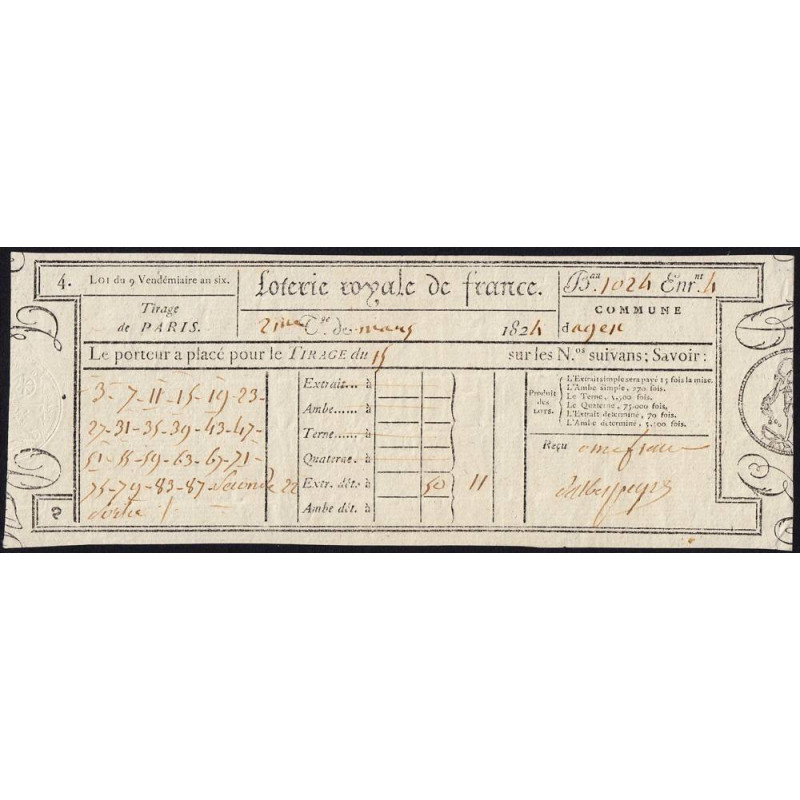 4. Loi du 9 Vendémiaire an six.
Tirage
de PARIS.
Loterie royale de france.
2me Tge de mars 1824
Bau. 1024 Enr.nt 4
COMMUNE
dagen
Le porteur a placé pour le TIRAGE du 15 sur les N.os suivans; Savoir:
3-7-11-15-19-23-
27-31-35-39-43-47-
51-55-59-63-67-71-
75-79-83-87 Seconde
Sortie
22
Extrait... à
Ambe...... à
Terne..... à
Quaterne. à
Extr. dét. à 50 11
Ambe dét. à
Produit
des
LOTS.
L'Extrait simple sera payé 15 fois la mise.
L'Ambe simple, 270 fois.
Le Terne, 5,500 fois.
Le Quaterne, 75,000 fois.
L'Extrait déterminé, 70 fois.
L'Ambe déterminé, 5,100 fois.
Reçu onze francs
S